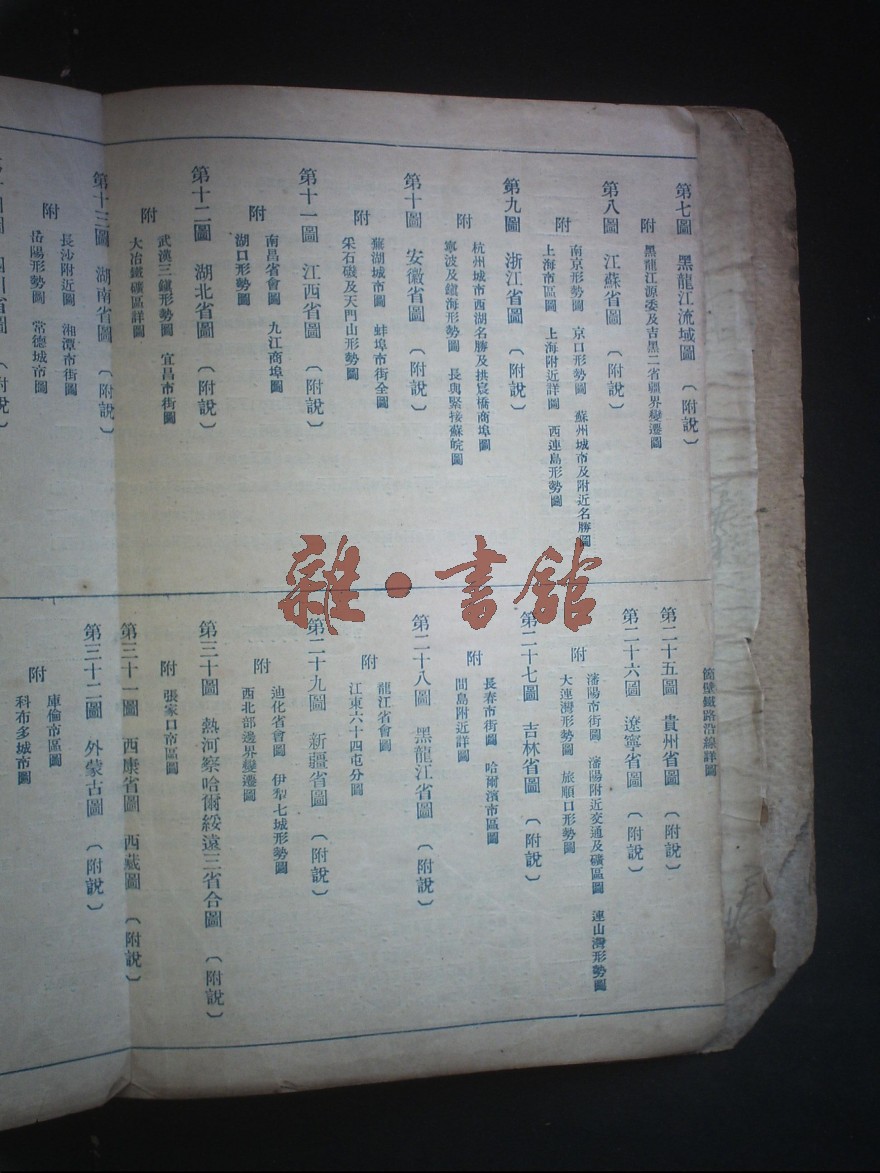 第七圖　黑龍江流域圖　（附說）
附　黑龍江源委及吉黑二省疆界變遷圖
第八圖　江蘇省圖　（附說）
附　南京形勢圖　京口形勢圖　蘇州城市及附近名勝圖
上海市區圖　上海附近詳圖　西連島形勢圖
第九圖　浙江省圖　（附說）
附　杭州城市西湖名勝及拱宸橋商埠圖
寧波及鎮海形勢圖　長興緊接蘇皖圖
第十圖　安徽省圖　（附說）
附　蕪湖城市圖　蚌埠市街全圖
采石磯及天門山形勢圖
第十一圖　江西省圖　（附說）
附　南昌省會圖　九江商埠圖
湖口形勢圖
第十二圖　湖北省圖　（附說）
附　武漢三鎮形勢圖　宜昌市街圖
大冶鐵礦區詳圖
第十三圖　湖南省圖　（附說）
附　長沙附近圖　湘潭市街圖
岳陽形勢圖　常德城市圖
箇壁鐵路沿線詳圖
第二十五圖　貴州省圖　（附說）
第二十六圖　遼寧省圖　（附說）
附　瀋陽市街圖　瀋陽附近交通及礦區圖　連山灣形勢圖
大連灣形勢圖　旅順口形勢圖
第二十七圖　吉林省圖　（附說）
附　長春市街圖　哈爾濱市區圖
間島附近詳圖
第二十八圖　黑龍江省圖　（附說）
附　龍江省會圖
江東六十四屯分圖
第二十九圖　新疆省圖　（附說）
附　迪化省會圖　伊犁七城形勢圖
西北部邊界變遷圖
第三十圖　熱河察哈爾綏遠三省合圖　（附說）
附　張家口市區圖
第三十一圖　西康省圖　西藏圖　（附說）
第三十二圖　外蒙古圖　（附說）
附　庫倫市區圖
科布多城市圖
雜·書館